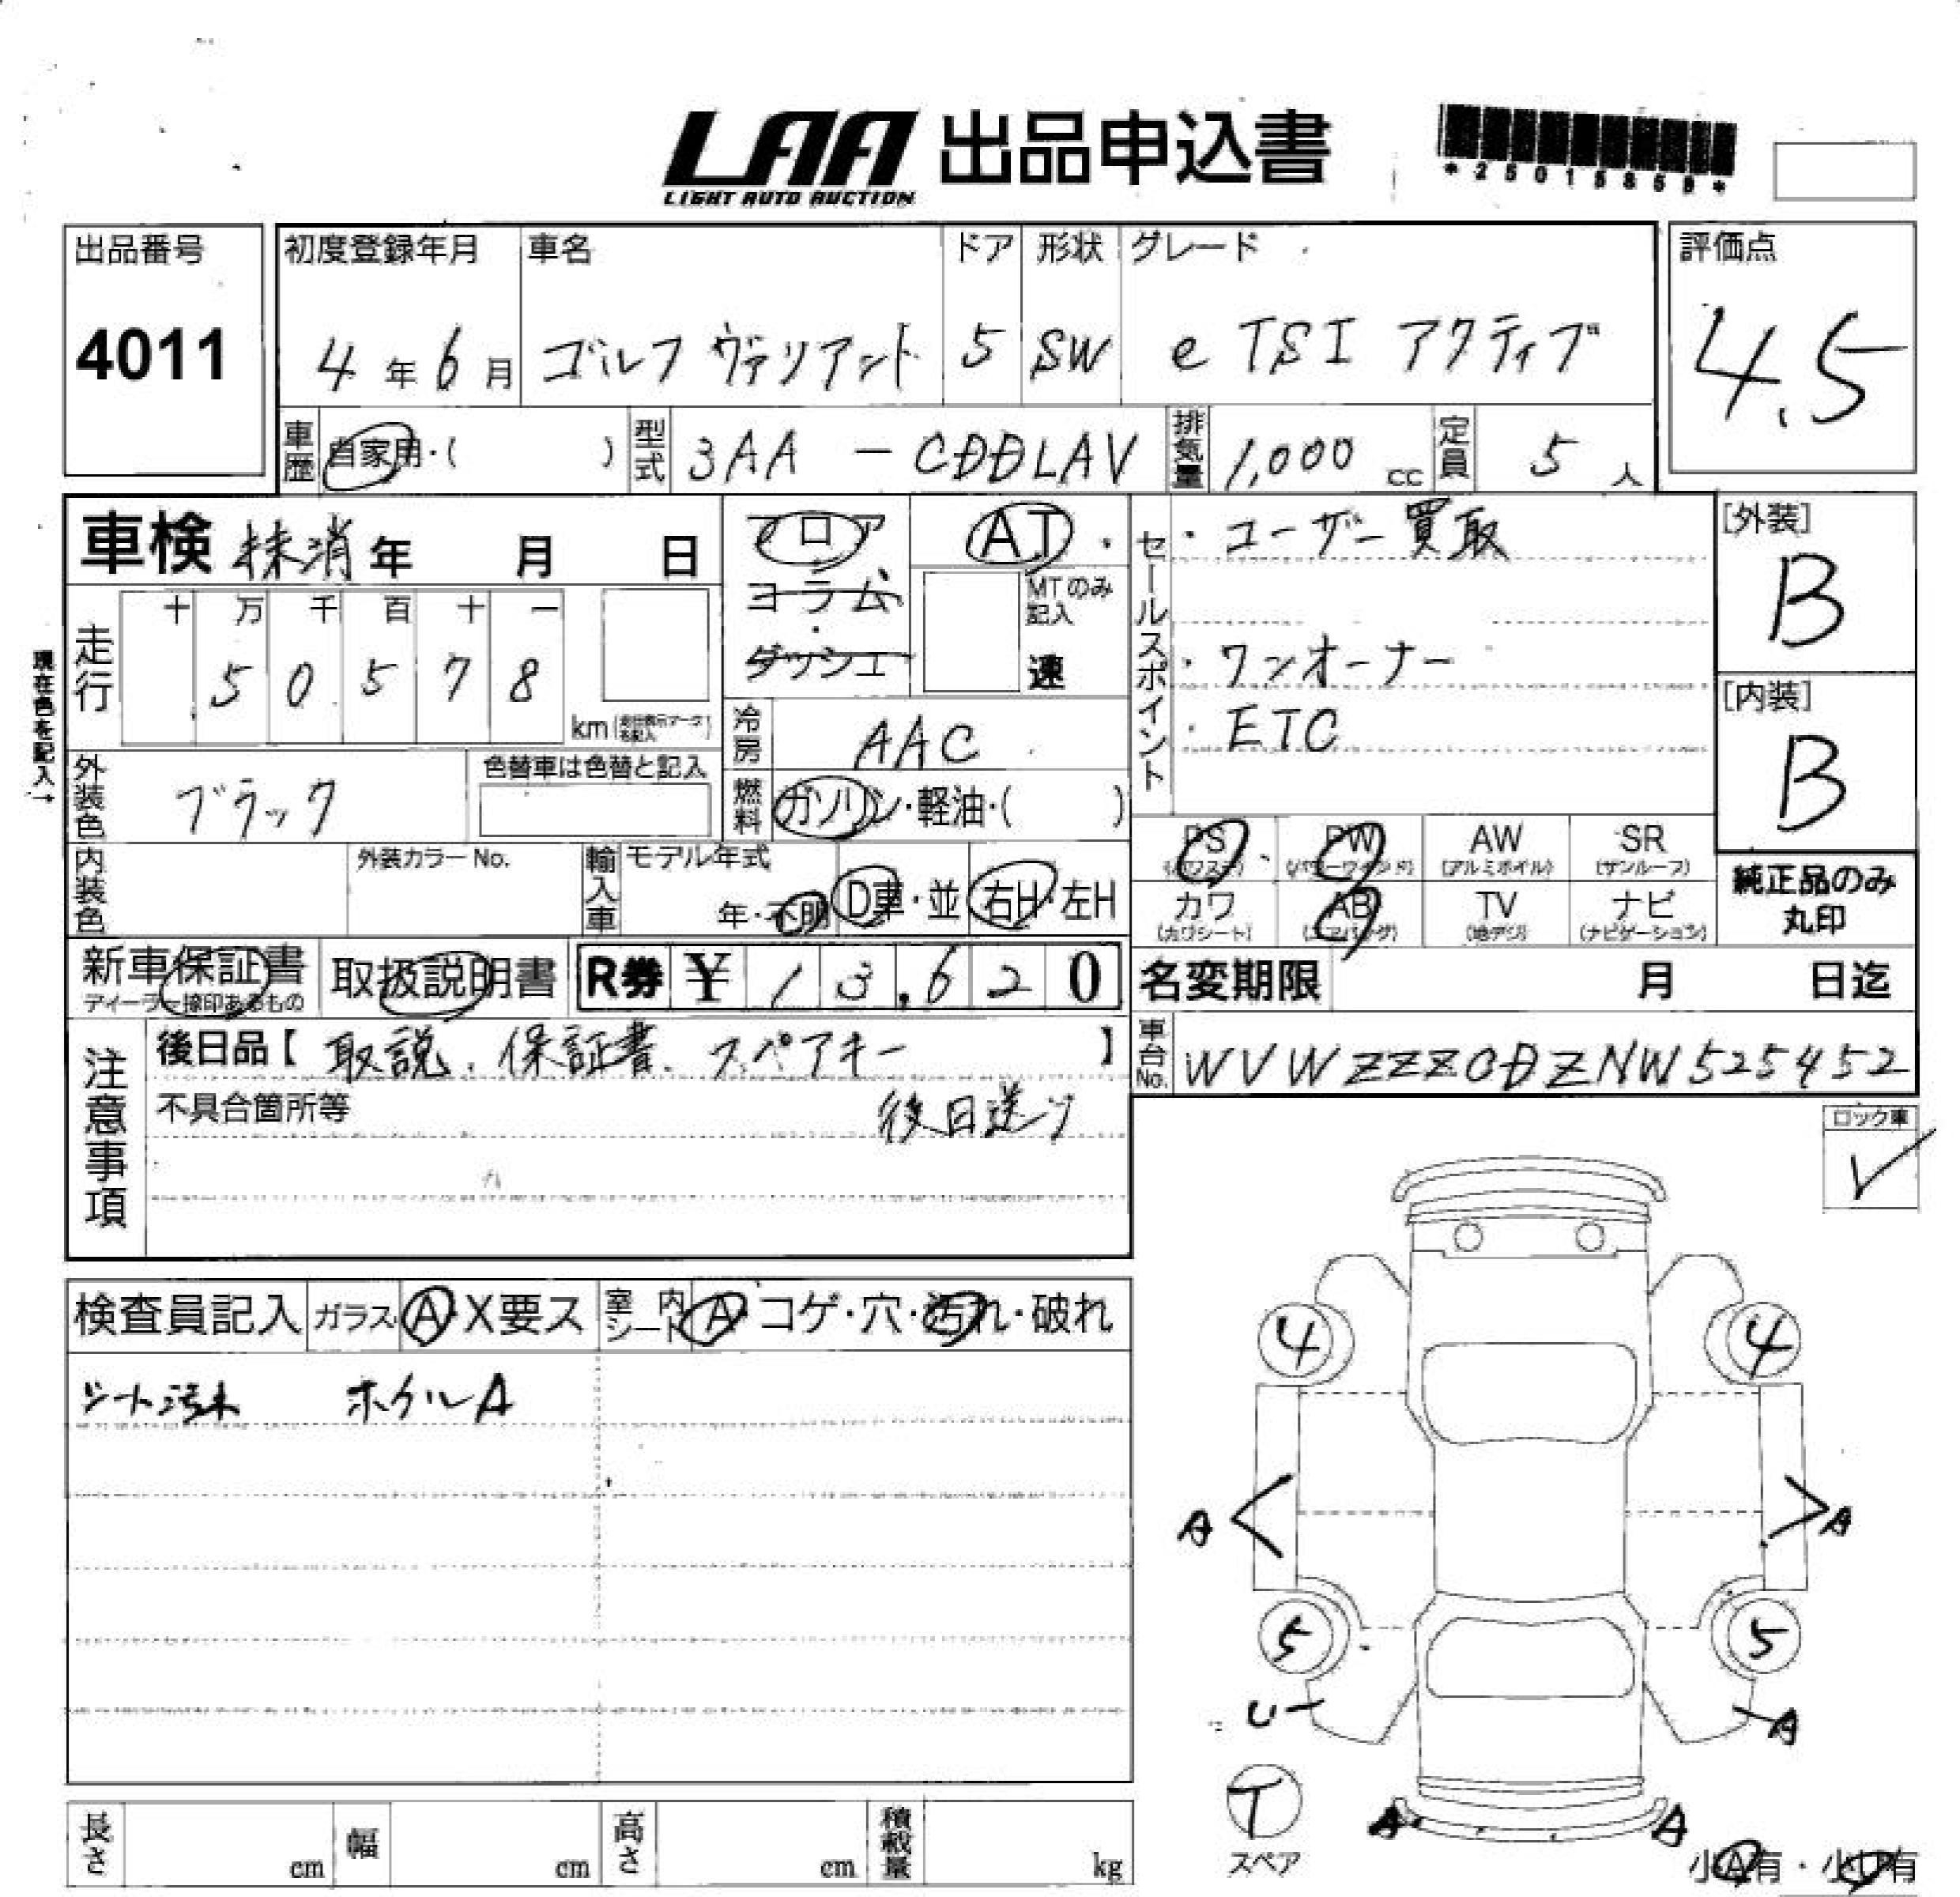 LAA 出品申込書
LIGHT AUTO AUCTION
*25015869*
出品番号
4011
初度登録年月 車名 ドア 形状 グレード 評価点
4年6月 ゴルフ ヴァリアント 5 SW e TSI アクティブ 4.5
車歴 自家用・( ) 型式 3AA-CDDLAV 排気量 1,000 cc 定員 5 人
車検 抹消 年 月 日
フロア
コラム
・
ダッシュ
AT・
MTのみ記入
速
走行 十 万 千 百 十 一
5 0 5 7 8
km
現在色を記入→
冷房 AAC
燃料 ガソリン・軽油・( )
セールスポイント
・ユーザー買取
・ワンオーナー
・ETC
[外装]
B
[内装]
B
外装色 ブラック
色替車は色替と記入
内装色 外装カラーNo.
輸入車 モデル年式
年・不明 D車・並 右H・左H
PS (パワステ) PW (パワーウインド) AW (アルミホイル) SR (サンルーフ)
カワ (カワシート) AB (エアバッグ) TV (地デジ) ナビ (ナビゲーション)
純正品のみ
丸印
新車保証書
ディーラー捺印あるもの
取扱説明書
R券 ¥ 13,620
名変期限 月 日迄
車台No. WVWZZZCDZNW525452
注意事項
後日品【取説、保証書、スペアキー】
不具合箇所等 後日送り
ロック車
✓
検査員記入 ガラス A・X要ス 室内シート A・コゲ・穴・汚れ・破れ
シート汚れ ホイルA
4 4
A A
5 5
U A
T
スペア
A A
小A有・小U有
長さ cm 幅 cm 高さ cm 積載量 kg